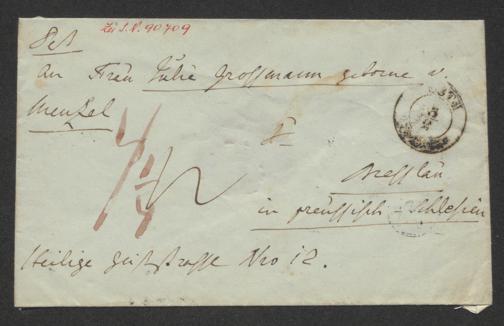 Zu I.N. 90709
An Frau Julie Grossmann geborne v.
Menzel
Zu
Bresslau
in preussisch-Schlesien
Heilige Geiststrasse Nro 12.